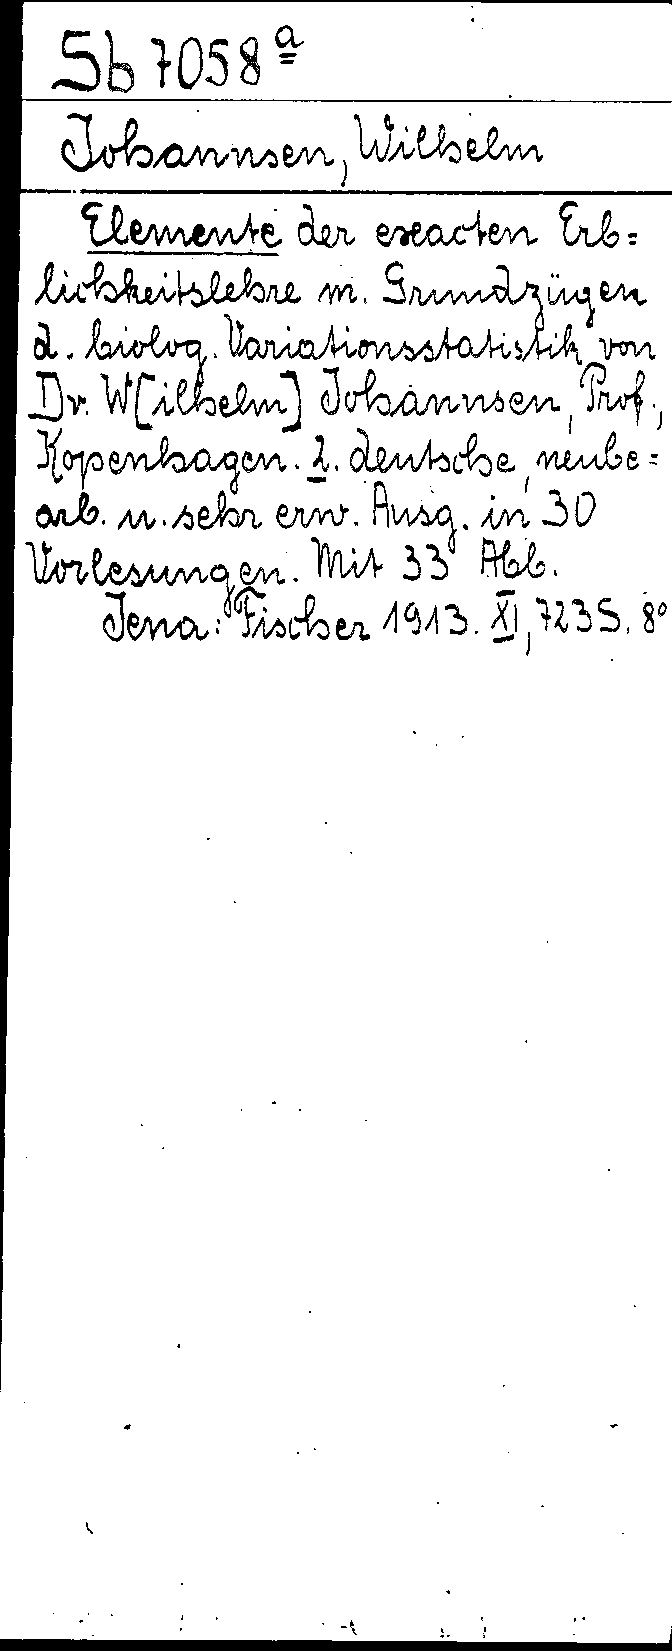 Sb 7058ª
Johannsen, Wilhelm
Elemente der exacten Erb=
lichkeitslehre m. Grundzügen
d. biolog. Variationsstatistik von
Dr. W[ilhelm] Johannsen, Prof.,
Kopenhagen. 2. deutsche, neube=
arb. u. sehr erw. Ausg. in 30
Vorlesungen. Mit 33 Abb.
Jena: Fischer 1913. XI, 723 S. 8°